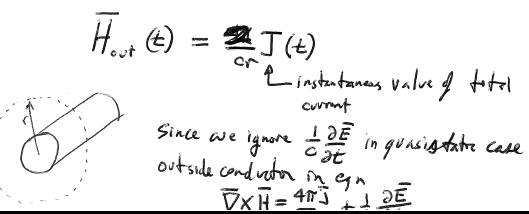 H̅out (t) = 2/cr J(t)
instantaneous value of total
current
r
since we ignore 1/c ∂E̅/∂t in quasistatic case
outside conductor in eqn
∇̅×H̅ = 4πJ̅ + 1 ∂E̅